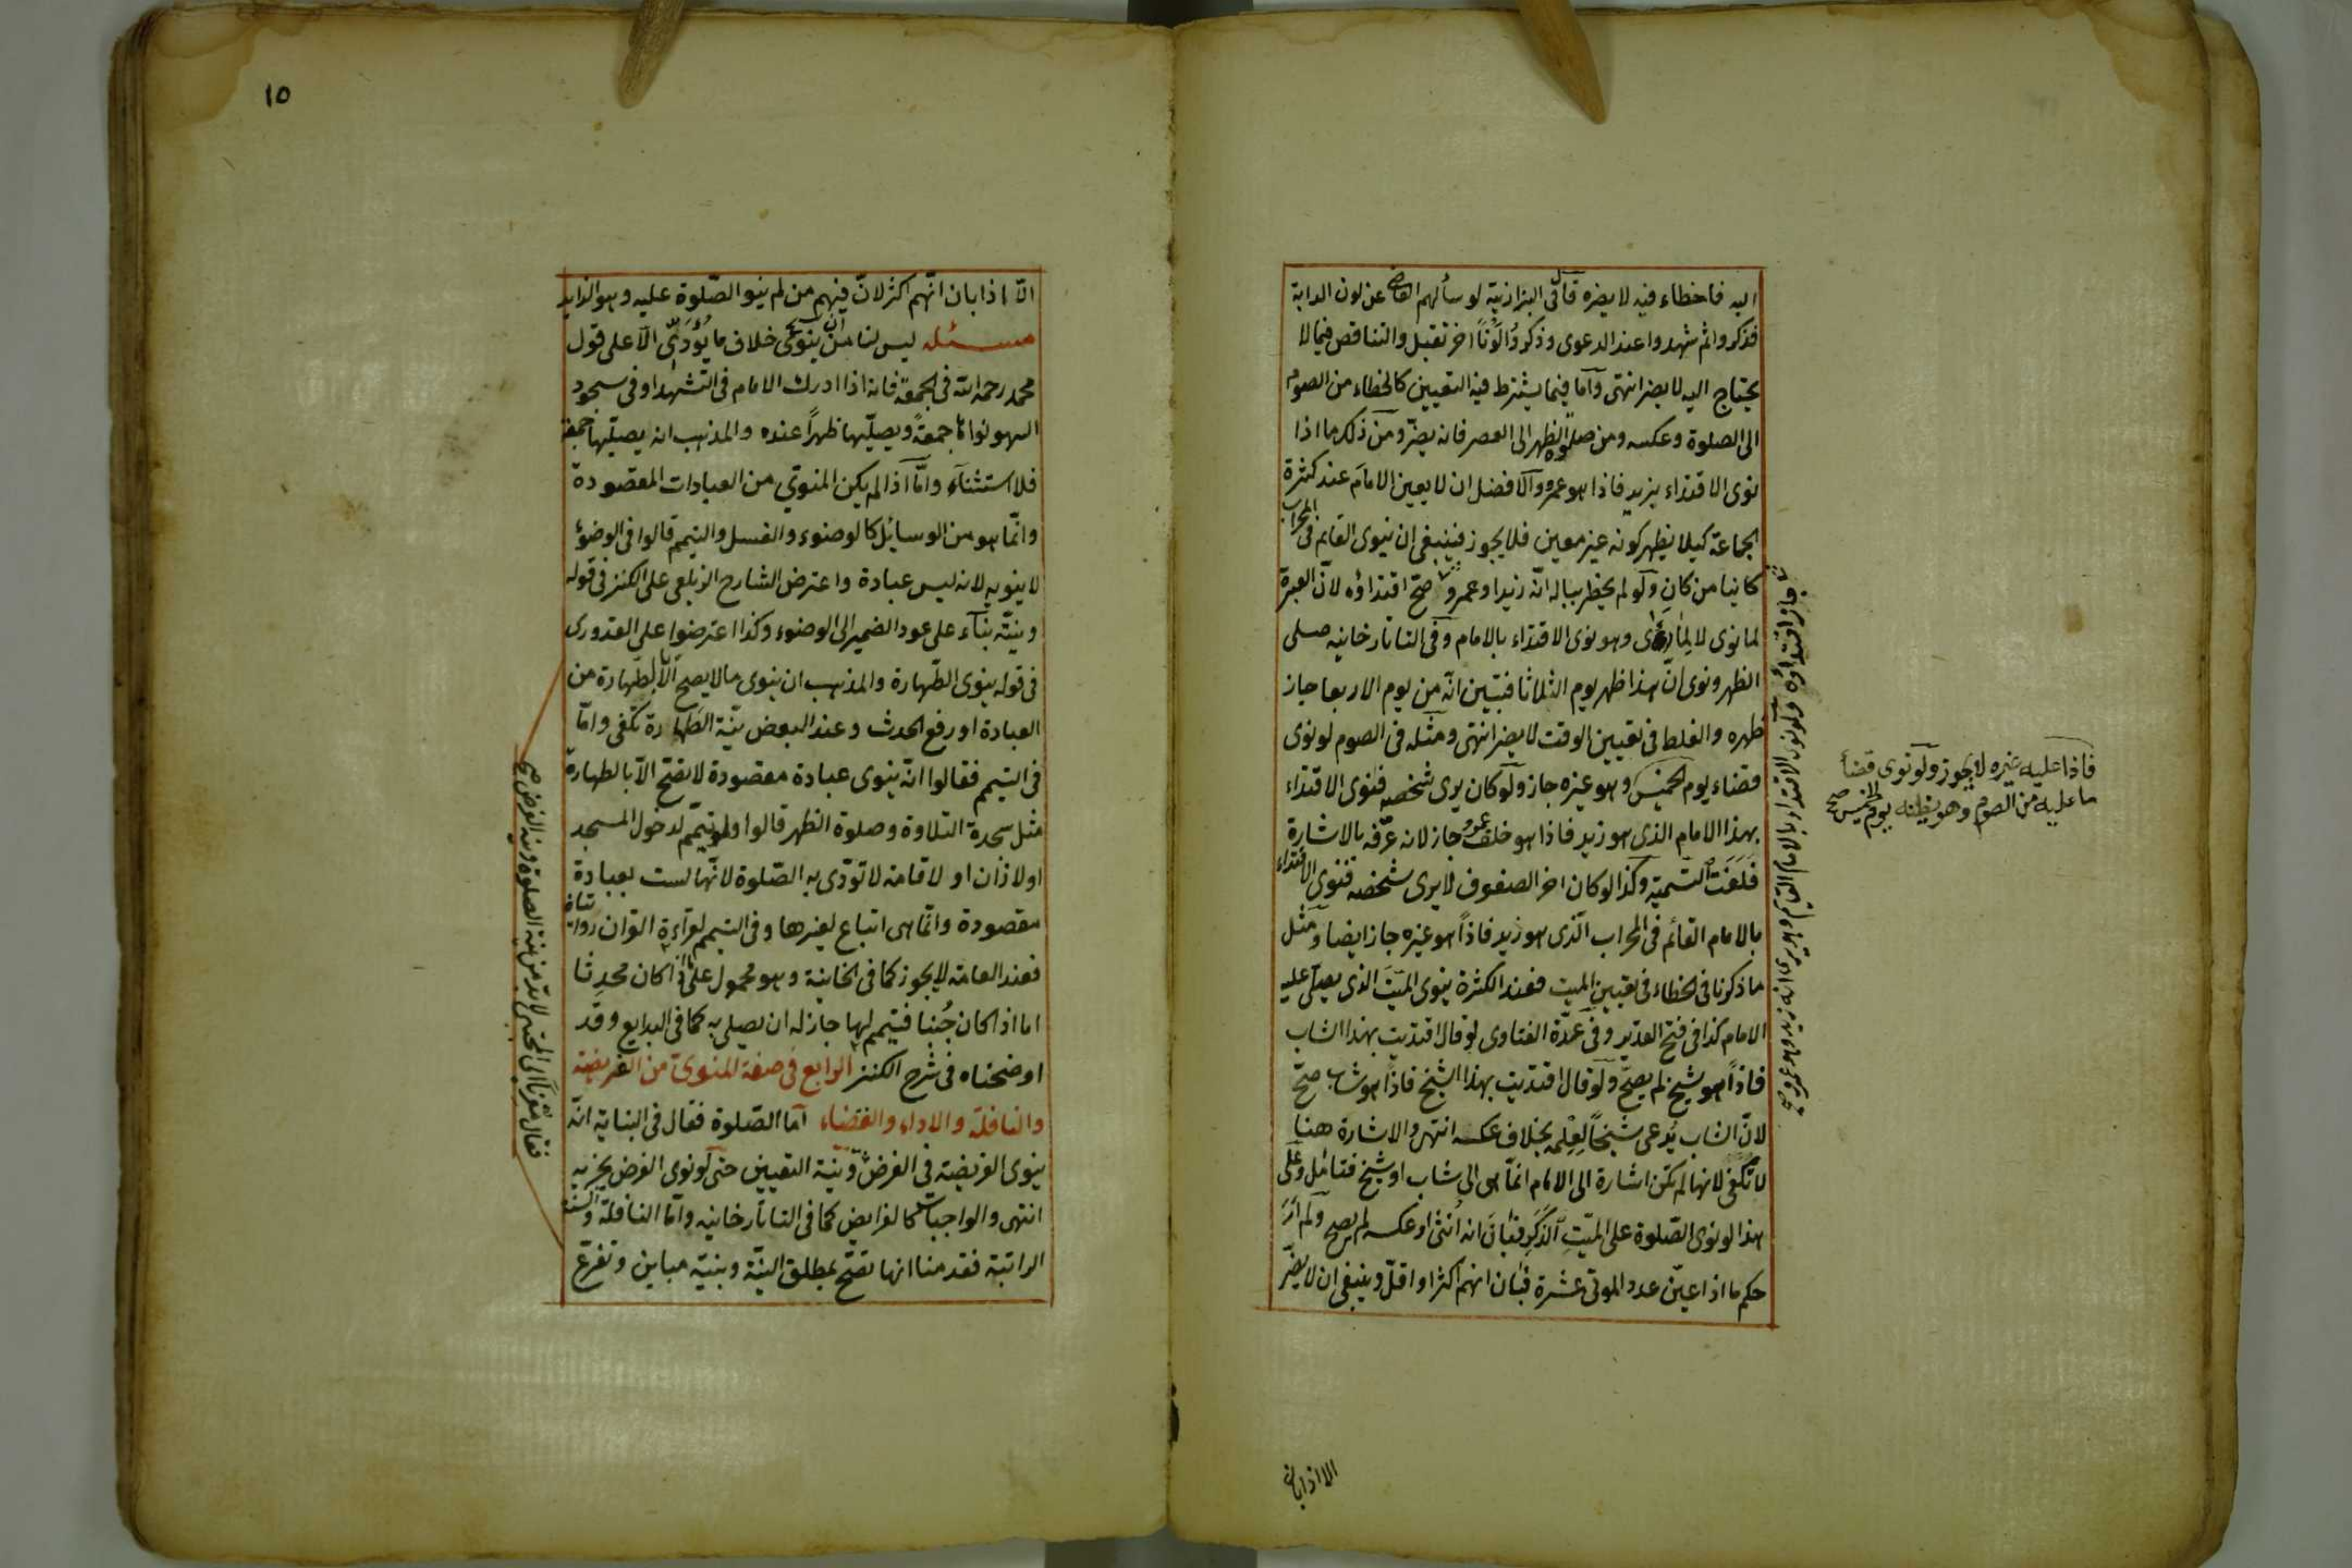 اليه فاخطاء فيه لا يضره قال فى البزازية لو سألهم القاضى عن لون الدابة
فذكروا ثم شهدوا عند الدعوى وذكروا لونا اخر تقبل والتناقض فيما لا
يحتاج اليه لا يضر انتهى وأما فيما يشترط فيه التعيين كالخطاء من الصوم
الى الصلوة وعكسه ومن صلوة الظهر الى العصر فانه يضر ومن ذلك ما اذا
نوى الاقتداء بزيد فاذا هو عمرو والافضل ان لا يعين الامام عند كثرة
الجماعة كيلا يظهر كونه غير معين فلا يجوز فينبغى ان ينوى القايم فى المحراب
كاينا من كان ولو لم يخطر بباله انه زيد او عمرو صح اقتداؤه لان العبرة
لما نوى لا لما رأى وهو نوى الاقتداء بالامام وفى التاتارخانيه صلى
الظهر ونوى ان هذا ظهر يوم الثلاثا فتبين انه من يوم الاربعا جاز
ظهره والغلط فى تعيين الوقت لا يضر انتهى ومثله فى الصوم لو نوى
قضاء يوم الخميس وهو غيره جاز ولو كان يرى شخصه فنوى الاقتداء
بهذا الامام الذى هو زيد فاذا هو خلفه عمرو جاز لانه عرفه بالاشارة
فلغت التسمية وكذا لو كان اخر الصفوف لا يرى شخصه فنوى الاقتداء
بالامام القائم فى المحراب الذى هو زيد فاذا هو غيره جاز ايضا ومثل
ما ذكرنا فى الخطاء فى تعيين الميت فعند الكثرة ينوى الميت الذى يصلى عليه
الامام كذا فى فتح القدير وفى عمدة الفتاوى لو قال اقتديت بهذا الشاب
فاذا هو شيخ لم يصح ولو قال اقتديت بهذا الشيخ فاذا هو شاب صح
لان الشاب يدعى شيخا لعلمه بخلاف عكسه انتهى والاشارة هنا
لا تكفى لانها لم تكن اشارة الى الامام انما هى الى شاب او شيخ فتامل وعلى
هذا لو نوى الصلوة على الميت الذكر فبان انه أنثى او عكسه لم يصح ولم أر
حكم ما اذا عين عدد الموتى عشرة فبان انهم اكثر او اقل وينبغى ان لا يضر
فاذا عليه غيره لا يجوز ولو نوى قضأ
ما عليه من الصوم وهو يظنه يوم الخميس صح
الا اذا بان
١٥
الا اذا بان انهم اكثر لان فيهم من لم ينو الصلوة عليه وهو الزايد
مسئله ليس لنا من ينوى خلاف ما يؤدى الا على قول
محمد رحمه الله فى الجمعة فانه اذا ادرك الامام فى التشهد او فى سجود
السهو نواها جمعة ويصليها ظهرا عنده والمذهب انه يصليها جمعة
فلا استثناء وأما اذا لم يكن المنوى من العبادات المقصودة
وانما هو من الوسايل كالوضوء والغسل والتيمم قالوا فى الوضوء
لا ينويه لانه ليس عبادة واعترض الشارح الزيلعى على الكنز فى قوله
ونيته بناء على عود الضمير الى الوضوء وكذا اعترضوا على القدورى
فى قوله ينوى الطهارة والمذهب ان ينوى ما لا يصح الا بالطهارة من
العبادة او رفع الحدث وعند البعض نية الطهارة تكفى واما
فى التيمم فقالوا انه ينوى عبادة مقصودة لا تصح الا بالطهارة
مثل سجدة التلاوة وصلوة الظهر قالوا ولو تيمم لدخول المسجد
او لاذان او لاقامة لا تؤدى به الصلوة لانها ليست بعبادة
مقصودة وانما هى اتباع لغيرها وفى التيمم لقراءة القران روايتان
فعند العامة لا يجوز كما فى الخانية وهو محمول على ما اذا كان محدثا
اما اذا كان جنبا فتيمم لها جاز له ان يصلى به كما فى البدايع وقد
اوضحناه فى شرح الكنز الرابع فى صفة المنوى من الفريضة
والنافلة والاداء والقضاء اما الصلوة فقال فى البناية انه
ينوى الفريضة فى الفرض ونية التعيين حتى لو نوى الفرض يجزيه
انتهى والواجبات كالفرايض كما فى التاتارخانيه واما النافلة والسنة
الراتبة فقدمنا انها تصح بمطلق النية وبنية مباين وتفرع